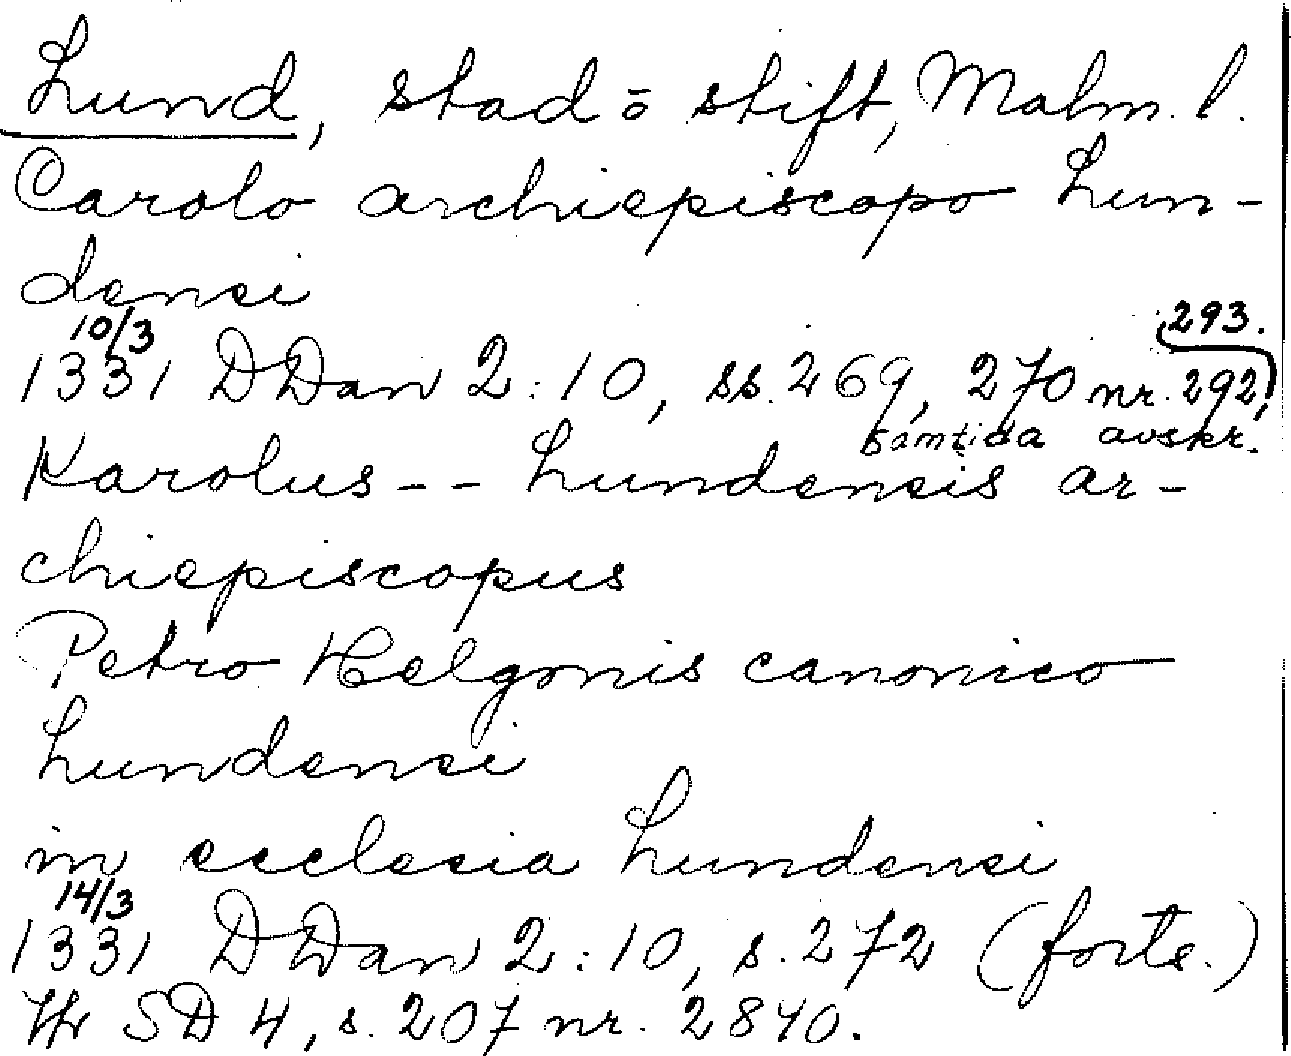 Lund, stad o stift, Malm. l.
Carolo archiepiscopo Lun-
densi
10/3
293.
1331 DDan 2:10, ss. 269, 270 nr. 292,
samtida avskr.
Karolus -- Lundensis ar-
chiepiscopus
Petro Helgonis canonico
Lundensi
in ecclesia Lundensi
14/3
1331 DDan 2:10, s. 272 (forts.)
SD 4, s. 207 nr. 2840.